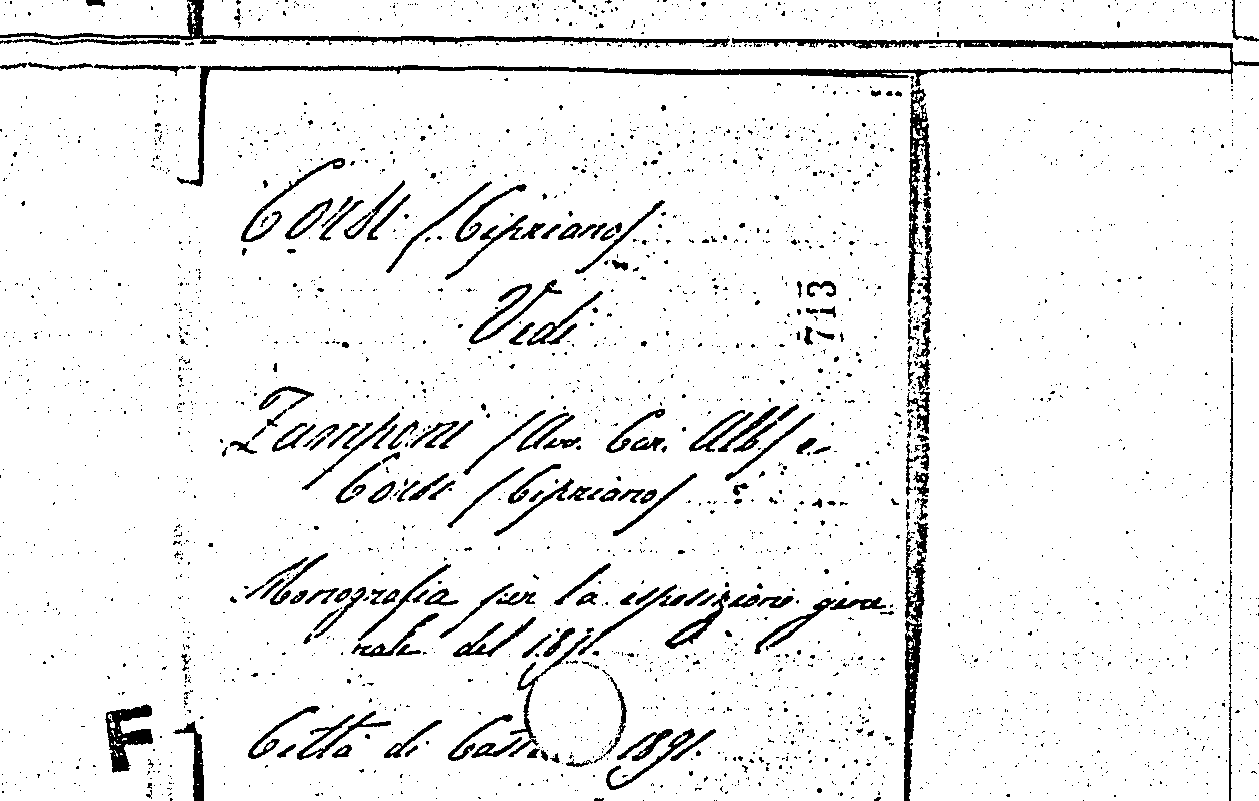 Corsi (Cipriano)
Vedi
713
Zamponi (Avv. Cav. Alb.) e
Corsi (Cipriano)
Monografia per la esposizione gene-
rale del 1891.
Città di 1891.
F